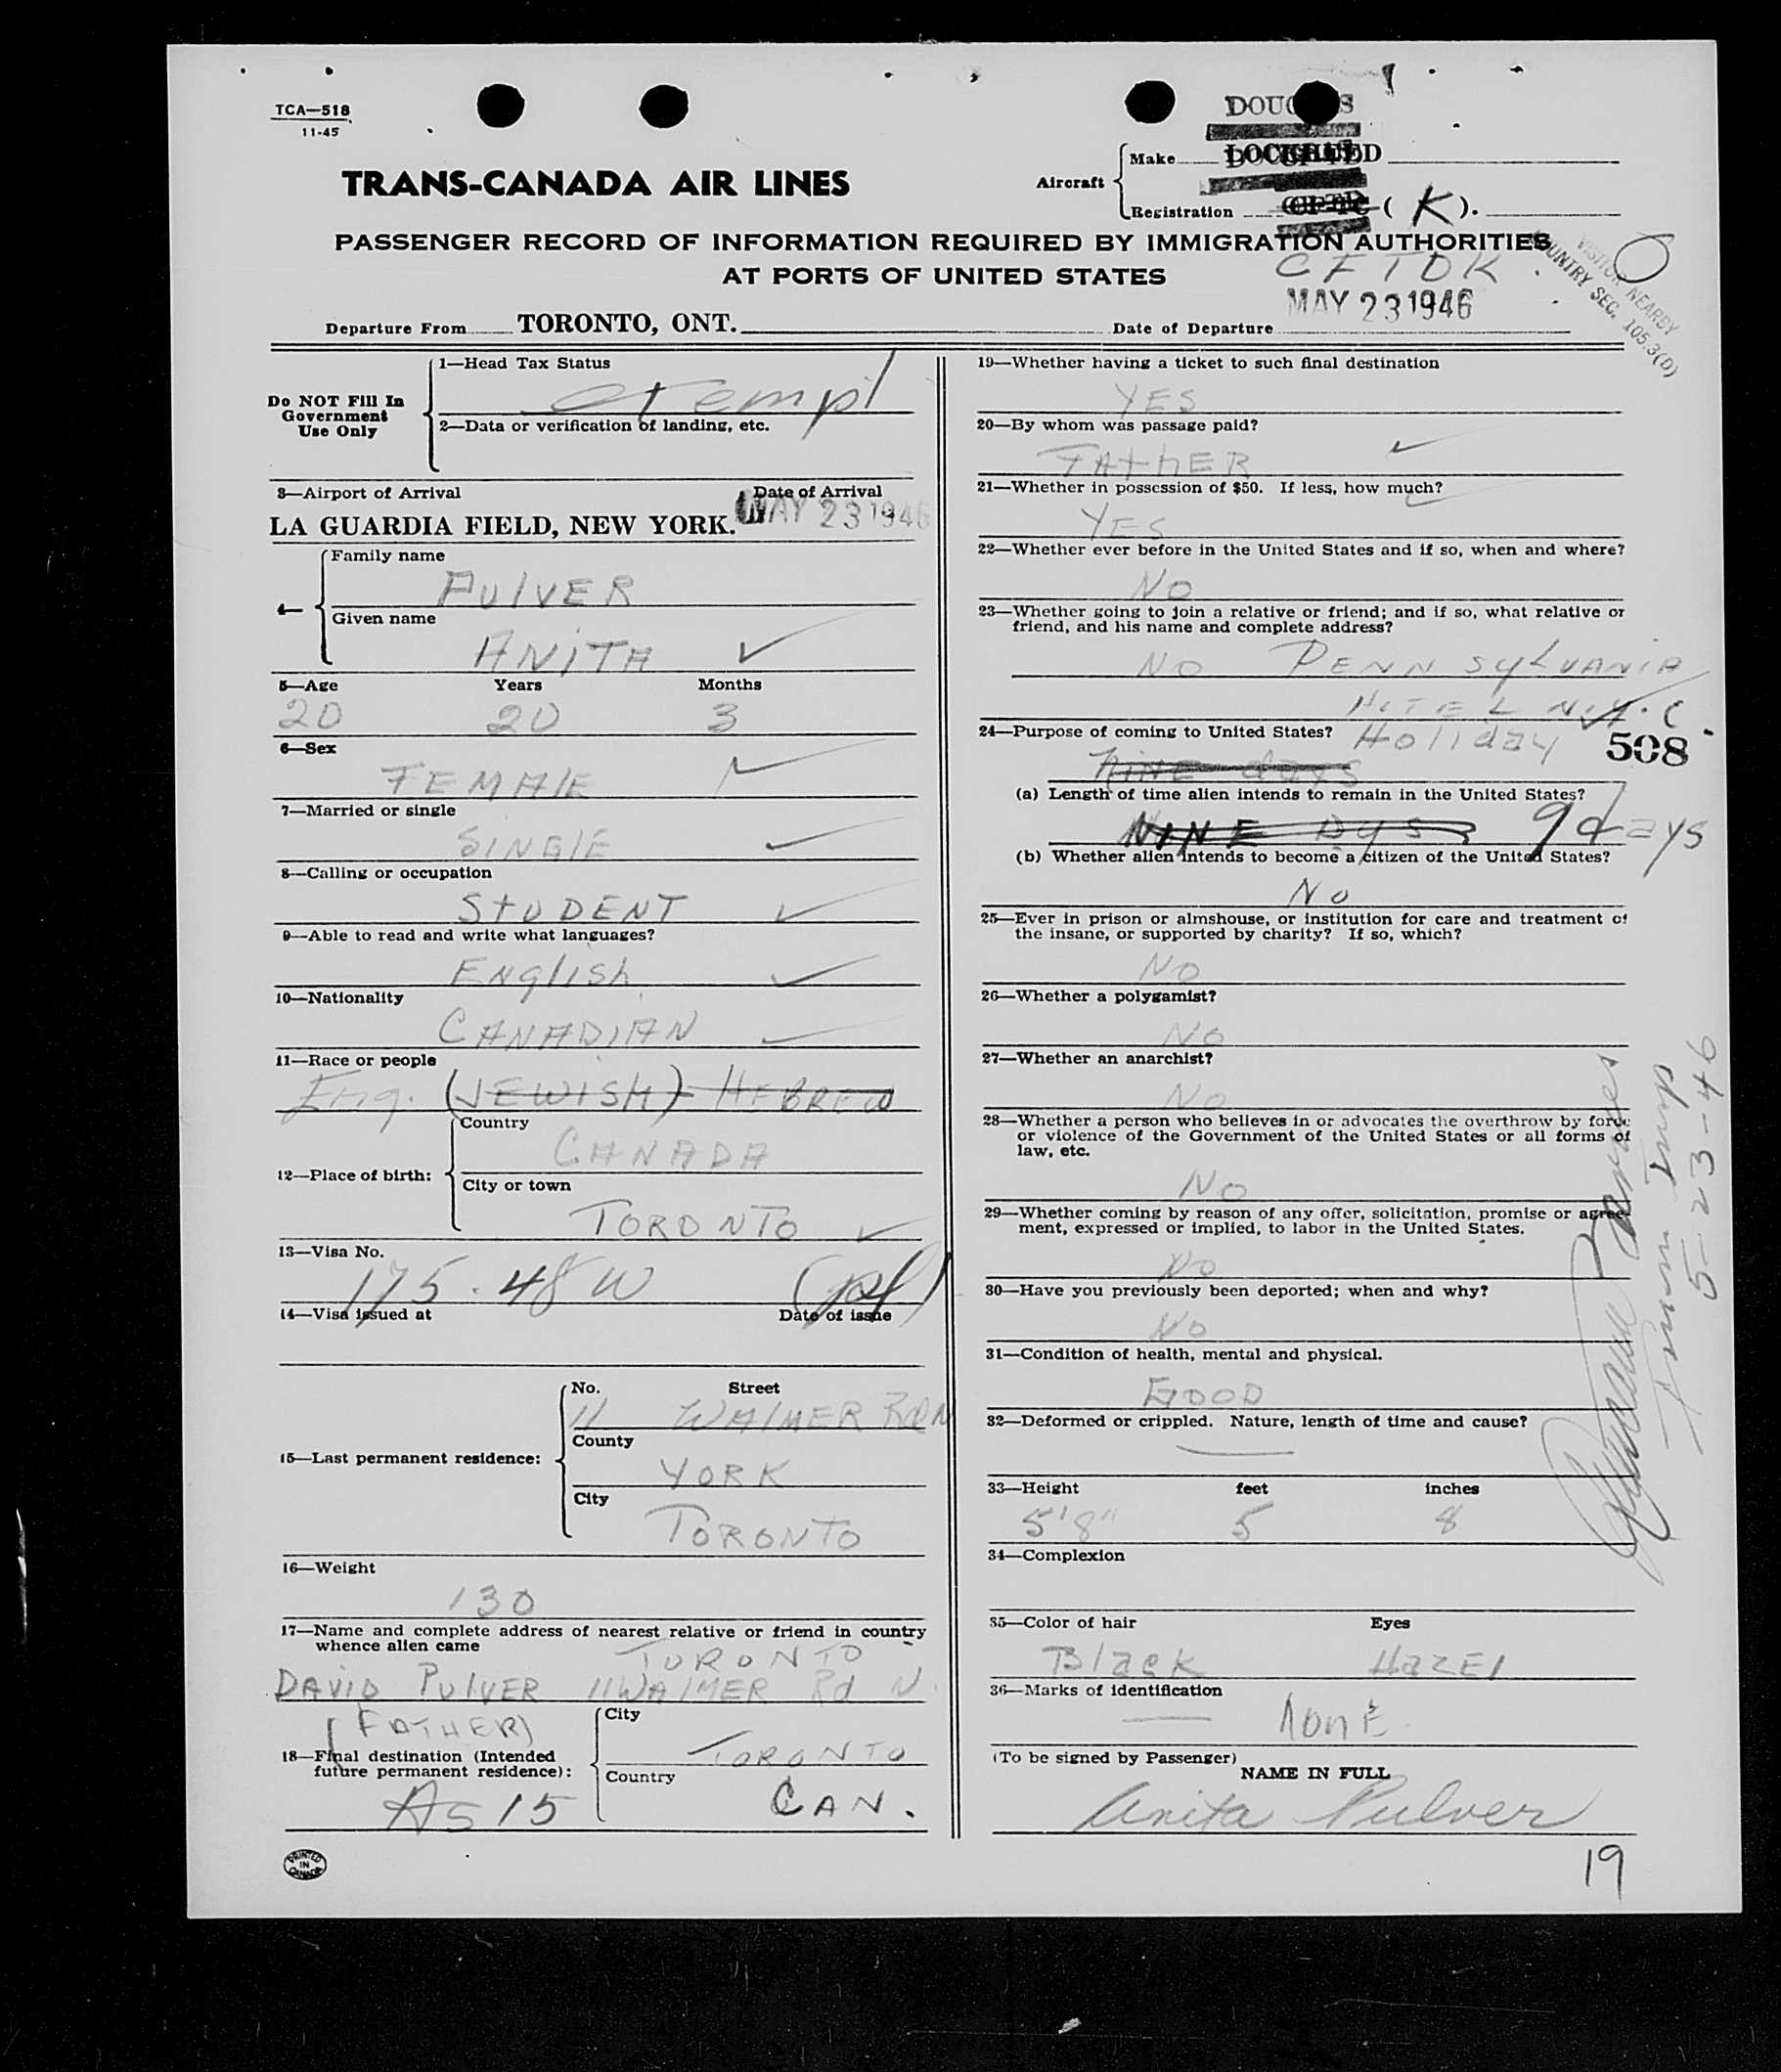 TCA—518
11-45
DOUGLAS
TRANS-CANADA AIR LINES
Aircraft
Make LOCKHEED
Registration CF-TC ( K ).
PASSENGER RECORD OF INFORMATION REQUIRED BY IMMIGRATION AUTHORITIES
AT PORTS OF UNITED STATES
CFTDK
VISITOR NEARBY
COUNTRY SEC. 105.3(D)
MAY 23 1946
Departure From TORONTO, ONT.
Date of Departure
Do NOT Fill In
Government
Use Only
1—Head Tax Status
exempt
2—Data or verification of landing, etc.
3—Airport of Arrival
Date of Arrival
LA GUARDIA FIELD, NEW YORK.
MAY 23 1946
4—
Family name
PULVER
Given name
ANITA
5—Age Years Months
20 20 3
6—Sex
FEMALE
7—Married or single
SINGLE
8—Calling or occupation
STUDENT
9—Able to read and write what languages?
ENglish
10—Nationality
CANADIAN
11—Race or people
Eng. (JEWISH) HEBREW
12—Place of birth:
Country
CANADA
City or town
TORONTO
13—Visa No.
175.48W
14—Visa issued at Date of issue
15—Last permanent residence:
No. Street
11 WALMER Rd N
County
YORK
City
TORONTO
16—Weight
130
17—Name and complete address of nearest relative or friend in country
whence alien came
TORONTO
DAVID PULVER 11 WALMER Rd N.
(FATHER)
18—Final destination (Intended
future permanent residence):
As 15
City
TORONTO
Country
CAN.
PRINTED
IN
CANADA
19—Whether having a ticket to such final destination
YES
20—By whom was passage paid?
FATHER
21—Whether in possession of $50. If less, how much?
YES
22—Whether ever before in the United States and if so, when and where?
NO
23—Whether going to join a relative or friend; and if so, what relative or
friend, and his name and complete address?
NO PENNSYLVANIA
HOTEL N.Y.C.
24—Purpose of coming to United States?
Holiday
508
NINE days
(a) Length of time alien intends to remain in the United States?
NINE DYS 9 days
(b) Whether alien intends to become a citizen of the United States?
No
25—Ever in prison or almshouse, or institution for care and treatment of
the insane, or supported by charity? If so, which?
NO
26—Whether a polygamist?
NO
27—Whether an anarchist?
NO
28—Whether a person who believes in or advocates the overthrow by force
or violence of the Government of the United States or all forms of
law, etc.
NO
29—Whether coming by reason of any offer, solicitation, promise or agree-
ment, expressed or implied, to labor in the United States.
NO
30—Have you previously been deported; when and why?
NO
31—Condition of health, mental and physical.
GOOD
32—Deformed or crippled. Nature, length of time and cause?
33—Height feet inches
5'8" 5 8
34—Complexion
35—Color of hair Eyes
Black HAZEL
36—Marks of identification
— NonE
(To be signed by Passenger)
NAME IN FULL
Anita Pulver
19
Imm Insp
5-23-46